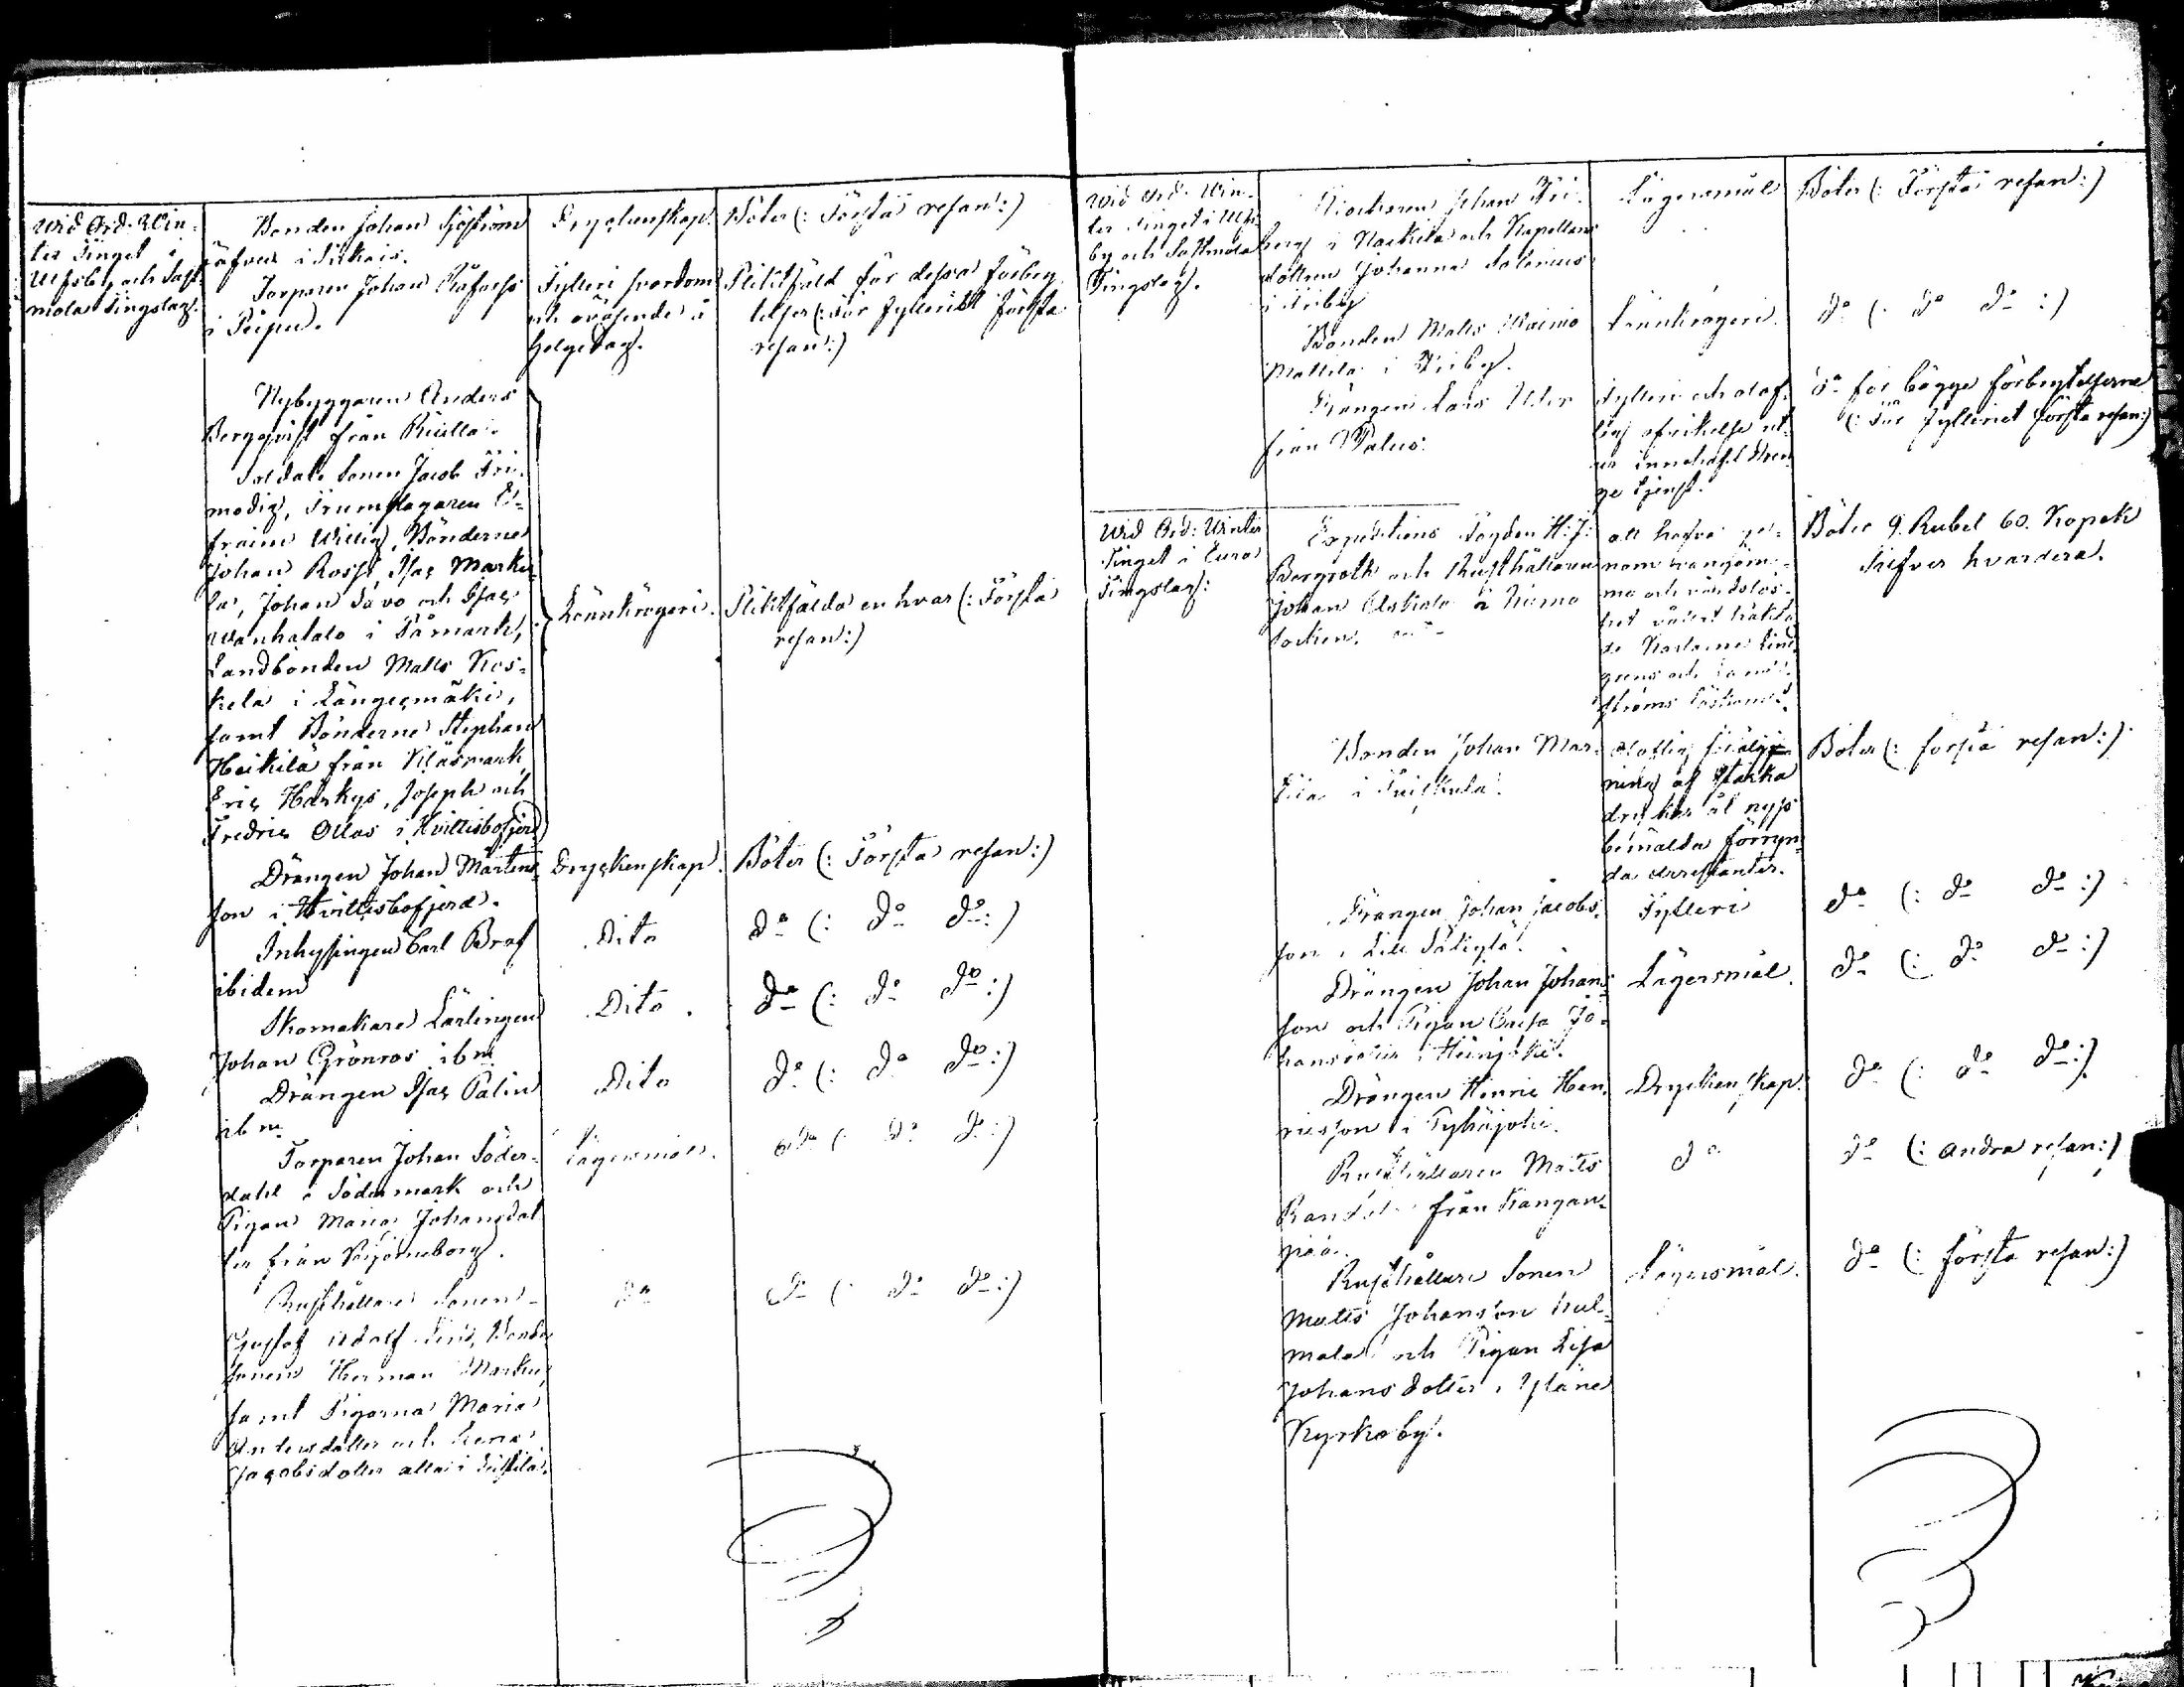 Wid Ord. Win-
ter Tinget i
Ulfsby och Sast-
mola Tingslag.
Bonden Johan Sjöström
i
Torparen Johan
i
Dryckenskap.
Fylleri svordom
och oväsende å
Helgedag.
Böter (: Första resan:)
Pliktfäld för dessa förbry-
telser (: För fylleriet första
resan:)
Nybyggaren Anders
Bergqvist från
Soldate Sonen Jacob Fri-
modig, Trumslagaren E-
fraim Willig, Bönderne
Johan Rossi, Isac Marki-
la, Johan Savo och Isac
Wanhatalo i Påmark,
Landbonden Matts Kos-
kela i Längesmäki,
samt Bönderne Stephan
Heikilä från Kläsmark
Eric Harkys, Joseph och
Fredric Ollas i Hvittisbofjerd
Lönnkrögeri.
Pliktfälda en hvar (: Första
resan:)
Drängen Johan Mårtens-
son i Hvittisbofjerd.
Dryckenskap.
Böter (: Första resan:)
Inhysingen Carl Braf
ibidem
Dito
do (: do do :)
Skomakare Lärlingen
Johan Grönros ibm
Dito.
do (: do do :)
Drängen Isac Palin
ibm.
Dito
do (: do do :)
Torparen Johan Söder-
dahl i Södermark och
Pigan Maria Johansdot-
ter från Björneborg.
Lägersmål.
do (: do do :)
Rusthållare Sonen
Gustaf Adolf Bonde
Sonen Herman
samt Pigorna Maria
Andersdotter och Lena
Jacobsdotter alla i
do
do (: do do :)
Wid Ord. Win-
ter Tinget i Ulfs-
by och Sastmola
Tingslag.
Johan Fri-
berg i och Kapellans
dottren Johanna Salenius
i
Lägersmål
Böter (: Första resan:)
Bonden Matts
Mattila i
Lönnkrögeri.
do (: do do :)
Drängen Lars
från
Fylleri och olof-
lig afvikelse ut-
ur innehafd Dren-
ge tjenst.
do för bägge förbrytelserne
(: För fylleriet första resan:)
Wid Ord: Winter
Tinget i Eura
Tingslag:
Expeditions Fogden H. J:
Bergroth och Rusthållaren
Johan i Kiumo
Socken.
att hafva ge-
nom
mo och vårdslös-
het
Böter 9. Rubel 60. Kopek
Silfver hvardera.
Bonden Johan Mar-
tila i
Oloflig försälj-
ning af starka
drycker åt nyss
bemälda förrym-
da arrestanter.
Böter (: första resan:)
Drängen Johan Jacobs-
son i Lill
Fylleri
do (: do do :)
Drängen Johan Johans-
son och Pigan Caisa Jo-
hansdotter i Heinjoki.
Lägersmål.
do (: do do :)
Drängen Henric Hen-
ricsson i Pyhäjoki.
Dryckenskap.
do (: do do :)
Rusthållaren Matts
från Kangan-
pää.
do
do (: andra resan:)
Rusthållare Sonen
Matts Johansson Kul-
mala och Pigan Lisa
Johansdotter i Yläne
Kyrkoby.
Lägersmål.
do (: första resan:)